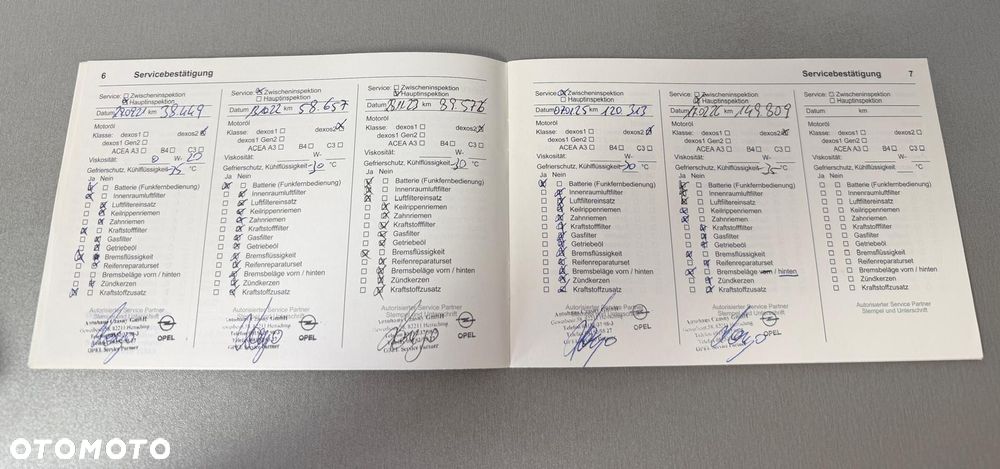 6 Servicebestätigung
Service: Zwischeninspektion
Hauptinspektion
Datum km 38.449
Motoröl
Klasse: dexos1 dexos2
dexos1 Gen2
ACEA A3 B4 C3
Viskosität: 0 W- 20
Gefrierschutz, Kühlflüssigkeit -35 °C
Ja Nein
Batterie (Funkfernbedienung)
Innenraumluftfilter
Luftfiltereinsatz
Keilrippenriemen
Zahnriemen
Kraftstofffilter
Gasfilter
Getriebeöl
Bremsflüssigkeit
Reifenreparaturset
Bremsbeläge vorn / hinten
Zündkerzen
Kraftstoffzusatz
Autorisierter Service Partner
Stempel und Unterschrift
OPEL
OPEL Service Partner
Service: Zwischeninspektion
Hauptinspektion
Datum km 58.657
Motoröl
Klasse: dexos1 dexos2
dexos1 Gen2
ACEA A3 B4 C3
Viskosität: W-
Gefrierschutz, Kühlflüssigkeit -30 °C
Ja Nein
Batterie (Funkfernbedienung)
Innenraumluftfilter
Luftfiltereinsatz
Keilrippenriemen
Zahnriemen
Kraftstofffilter
Gasfilter
Getriebeöl
Bremsflüssigkeit
Reifenreparaturset
Bremsbeläge vorn / hinten
Zündkerzen
Kraftstoffzusatz
Autorisierter Service Partner
Stempel und Unterschrift
OPEL
Service: Zwischeninspektion
Hauptinspektion
Datum km
Motoröl
Klasse: dexos1 dexos2
dexos1 Gen2
ACEA A3 B4 C3
Viskosität: W-
Gefrierschutz, Kühlflüssigkeit -30 °C
Ja Nein
Batterie (Funkfernbedienung)
Innenraumluftfilter
Luftfiltereinsatz
Keilrippenriemen
Zahnriemen
Kraftstofffilter
Gasfilter
Getriebeöl
Bremsflüssigkeit
Reifenreparaturset
Bremsbeläge vorn / hinten
Zündkerzen
Kraftstoffzusatz
Autorisierter Service Partner
Stempel und Unterschrift
OPEL
OPEL Service Partner
Servicebestätigung 7
Service: Zwischeninspektion
Hauptinspektion
Datum km 120 313
Motoröl
Klasse: dexos1 dexos2
dexos1 Gen2
ACEA A3 B4 C3
Viskosität: W-
Gefrierschutz, Kühlflüssigkeit -30 °C
Ja Nein
Batterie (Funkfernbedienung)
Innenraumluftfilter
Luftfiltereinsatz
Keilrippenriemen
Zahnriemen
Kraftstofffilter
Gasfilter
Getriebeöl
Bremsflüssigkeit
Reifenreparaturset
Bremsbeläge vorn / hinten
Zündkerzen
Kraftstoffzusatz
Autorisierter Service Partner
Stempel und Unterschrift
OPEL
Service: Zwischeninspektion
Hauptinspektion
Datum km 149.809
Motoröl
Klasse: dexos1 dexos2
dexos1 Gen2
ACEA A3 B4 C3
Viskosität: W-
Gefrierschutz, Kühlflüssigkeit -35 °C
Ja Nein
Batterie (Funkfernbedienung)
Innenraumluftfilter
Luftfiltereinsatz
Keilrippenriemen
Zahnriemen
Kraftstofffilter
Gasfilter
Getriebeöl
Bremsflüssigkeit
Reifenreparaturset
Bremsbeläge vorn / hinten
Zündkerzen
Kraftstoffzusatz
Autorisierter Service Partner
Stempel und Unterschrift
OPEL
Service: Zwischeninspektion
Hauptinspektion
Datum km
Motoröl
Klasse: dexos1 dexos2
dexos1 Gen2
ACEA A3 B4 C3
Viskosität: W-
Gefrierschutz, Kühlflüssigkeit °C
Ja Nein
Batterie (Funkfernbedienung)
Innenraumluftfilter
Luftfiltereinsatz
Keilrippenriemen
Zahnriemen
Kraftstofffilter
Gasfilter
Getriebeöl
Bremsflüssigkeit
Reifenreparaturset
Bremsbeläge vorn / hinten
Zündkerzen
Kraftstoffzusatz
Autorisierter Service Partner
Stempel und Unterschrift
OTOMOTO